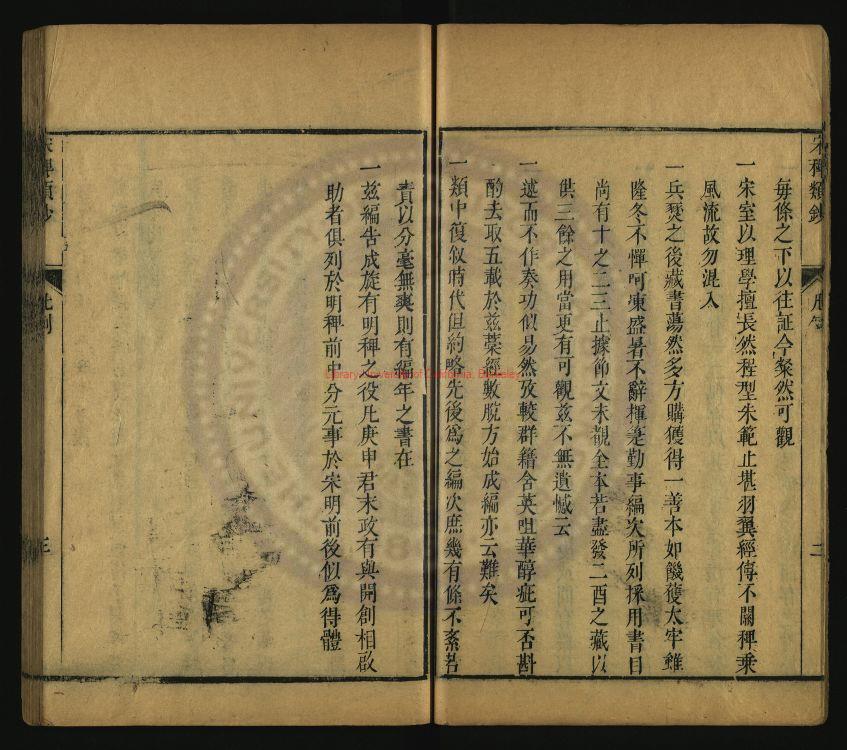 毎條之下以往証今粲然可觀
一宋室以理學擅長然程型朱範止堪羽翼經傳不關稗乗
風流故勿混入
一兵燹之後藏書蕩然多方購獲得一善本如饑獲太牢雖
隆冬不憚呵凍盛暑不辭揮箑勤事編次所列採用書目
尚有十之二三止據節文未覩全本若盡發二酉之藏以
供三餘之用當更有可觀兹不無遺憾云
一述而不作奏功似易然攷較群籍含英咀華醇疵可否斟
酌去取五載於兹藁經數脫方始成編亦云難矣
一類中復敘時代但約略先後爲之編次庶幾有條不紊若
責以分毫無爽則有編年之書在
一兹編告成旋有明稗之役凡庚申君末政有與開創相啟
助者俱列於明稗前中分元事於宋明前後似爲得體
宋稗類鈔
二
三
Library University of California, Berkeley